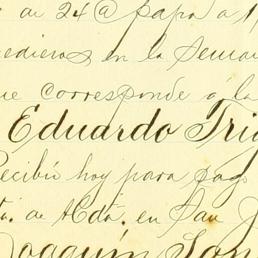 de 24@ papa a 1
en la Semana
que corresponde a la
Eduardo Tri
Recibió hoy para pago
de Hda. en San J
Joaquín San